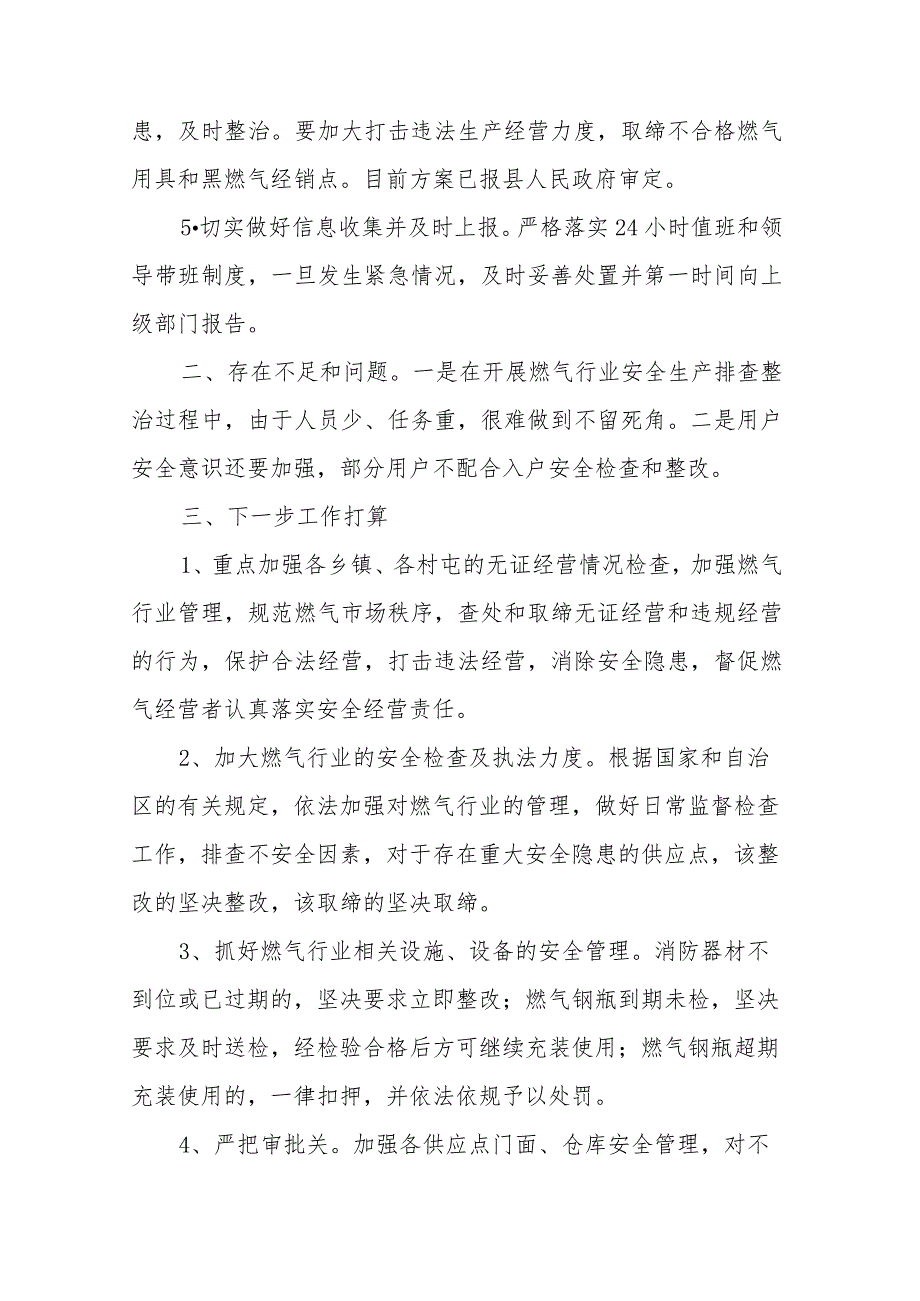 患，及时整治。要加大打击违法生产经营力度，取缔不合格燃气
用具和黑燃气经销点。目前方案已报县人民政府审定。
5•切实做好信息收集并及时上报。严格落实24小时值班和领
导带班制度，一旦发生紧急情况，及时妥善处置并第一时间向上
级部门报告。
二、存在不足和问题。一是在开展燃气行业安全生产排查整
治过程中，由于人员少、任务重，很难做到不留死角。二是用户
安全意识还要加强，部分用户不配合入户安全检查和整改。
三、下一步工作打算
1、重点加强各乡镇、各村屯的无证经营情况检查，加强燃气
行业管理，规范燃气市场秩序，查处和取缔无证经营和违规经营
的行为，保护合法经营，打击违法经营，消除安全隐患，督促燃
气经营者认真落实安全经营责任。
2、加大燃气行业的安全检查及执法力度。根据国家和自治
区的有关规定，依法加强对燃气行业的管理，做好日常监督检查
工作，排查不安全因素，对于存在重大安全隐患的供应点，该整
改的坚决整改，该取缔的坚决取缔。
3、抓好燃气行业相关设施、设备的安全管理。消防器材不
到位或已过期的，坚决要求立即整改；燃气钢瓶到期未检，坚决
要求及时送检，经检验合格后方可继续充装使用；燃气钢瓶超期
充装使用的，一律扣押，并依法依规予以处罚。
4、严把审批关。加强各供应点门面、仓库安全管理，对不